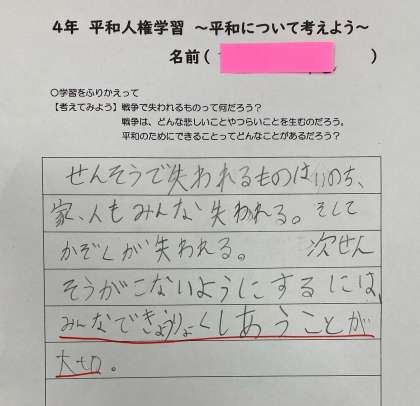 4年 平和人権学習 ～平和について考えよう～
名前( )
○学習をふりかえって
【考えてみよう】戦争で失われるものって何だろう？
戦争は、どんな悲しいことやつらいことを生むのだろう。
平和のためにできることってどんなことがあるだろう？
せんそうで失われるものはいのち、
家、人もみんな失われる。そして
かぞくが失われる。 次せん
そうがこないようにするには、
みんなできょうりょくしあうことが
大切。